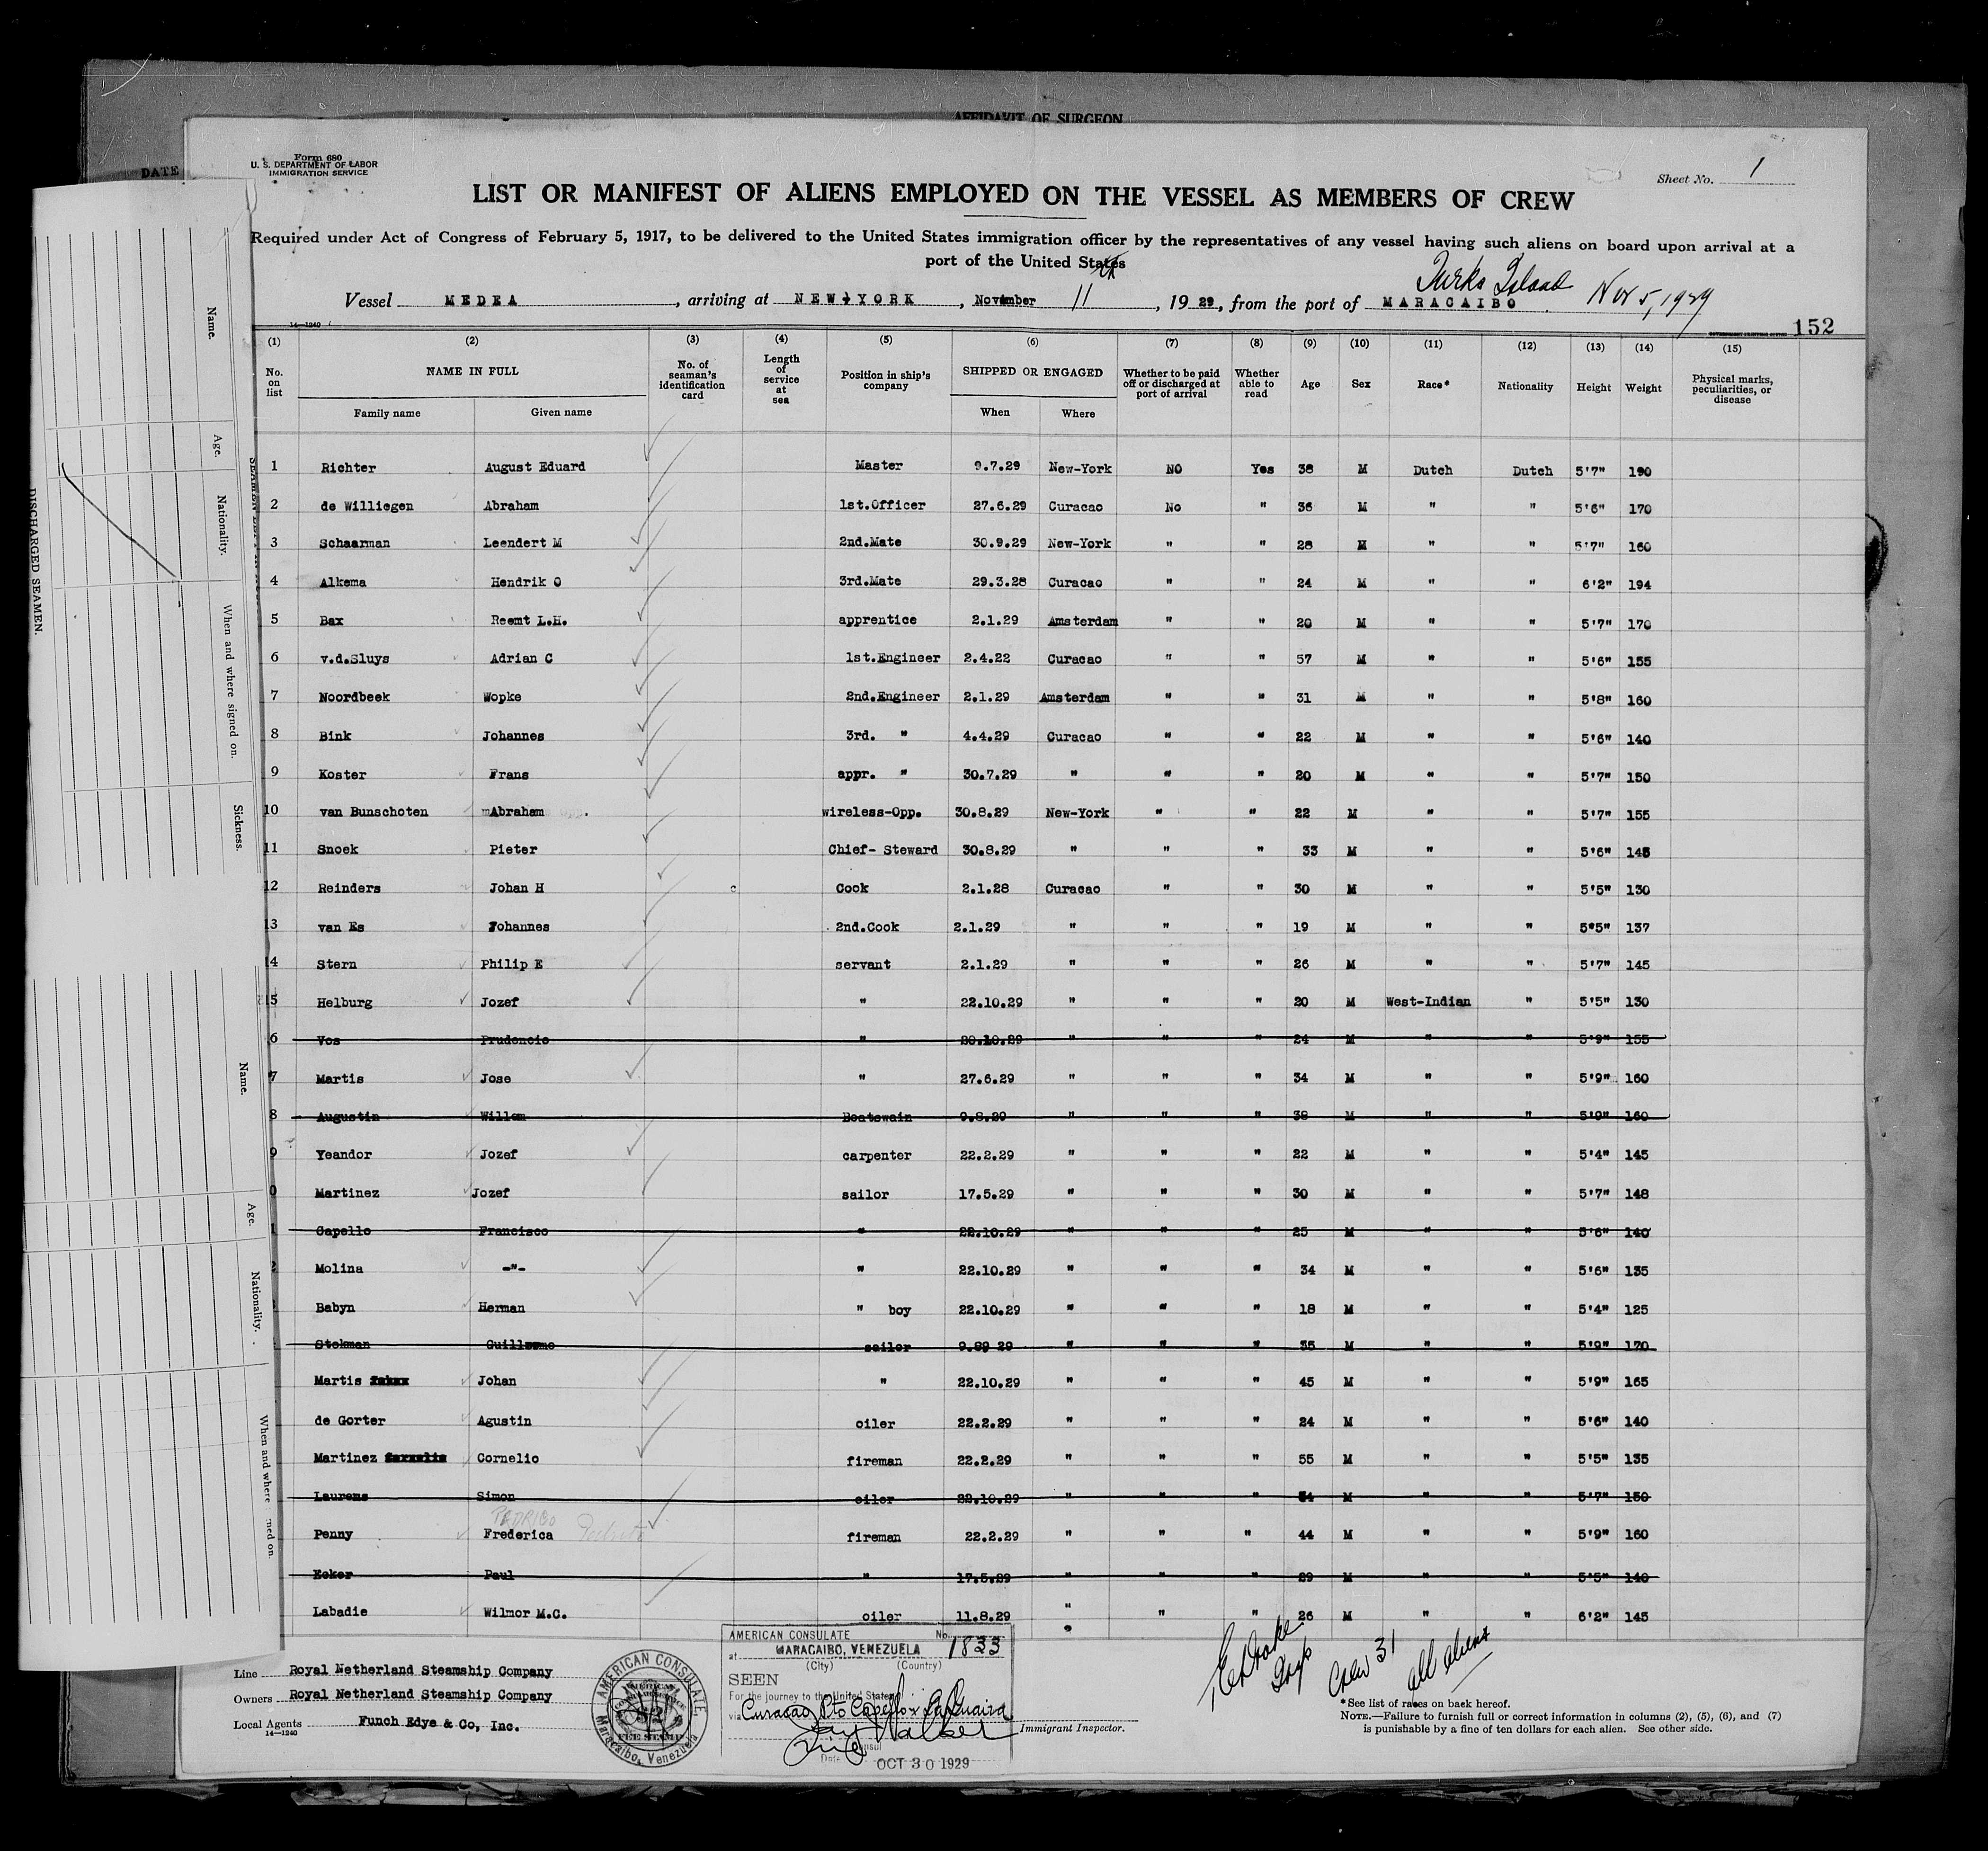 AFFIDAVIT OF SURGEON
DATE
Form 680
U. S. DEPARTMENT OF LABOR
IMMIGRATION SERVICE
Sheet No. 1
LIST OR MANIFEST OF ALIENS EMPLOYED ON THE VESSEL AS MEMBERS OF CREW
Required under Act of Congress of February 5, 1917, to be delivered to the United States immigration officer by the representatives of any vessel having such aliens on board upon arrival at a
port of the United States
Turks Island Nov 5, 1929
Vessel MEDEA, arriving at NEW YORK, November 11, 1929, from the port of MARACAIBO
14-1240
152
(1) (2) (3) (4) (5) (6) (7) (8) (9) (10) (11) (12) (13) (14) (15)
No. on list NAME IN FULL No. of seaman's identification card Length of service at sea Position in ship's company SHIPPED OR ENGAGED Whether to be paid off or discharged at port of arrival Whether able to read Age Sex Race* Nationality Height Weight Physical marks, peculiarities, or disease
Family name Given name When Where
1 Richter August Eduard Master 9.7.29 New-York NO Yes 38 M Dutch Dutch 5'7" 190
2 de Williegen Abraham 1st.Officer 27.6.29 Curacao No " 36 M " " 5'6" 170
3 Schaarman Leendert M 2nd.Mate 30.9.29 New-York " " 28 M " " 5'7" 160
4 Alkema Hendrik O 3rd.Mate 29.3.28 Curacao " " 24 M " " 6'2" 194
5 Bax Reemt L.H. apprentice 2.1.29 Amsterdam " " 20 M " " 5'7" 170
6 v.d.Sluys Adrian C 1st.Engineer 2.4.22 Curacao " " 57 M " " 5'6" 155
7 Noordbeek Wopke 2nd.Engineer 2.1.29 Amsterdam " " 31 M " " 5'8" 160
8 Bink Johannes 3rd. " 4.4.29 Curacao " " 22 M " " 5'6" 140
9 Koster Frans appr. " 30.7.29 " " " 20 M " " 5'7" 150
10 van Bunschoten Abraham wireless-Opp. 30.8.29 New-York " " 22 M " " 5'7" 155
11 Snoek Pieter Chief- Steward 30.8.29 " " " 33 M " " 5'6" 145
12 Reinders Johan H Cook 2.1.28 Curacao " " 30 M " " 5'5" 130
13 van Es Johannes 2nd.Cook 2.1.29 " " " 19 M " " 5'5" 137
14 Stern Philip E servant 2.1.29 " " " 26 M " " 5'7" 145
15 Helburg Jozef " 22.10.29 " " " 20 M West-Indian " 5'5" 130
6 Vos Prudencio " 20.10.29 " " " 24 M " " 5'9" 155
7 Martis Jose " 27.6.29 " " " 34 M " " 5'9" 160
8 Augustin Willem Boatswain 9.8.29 " " " 38 M " " 5'9" 160
9 Yeandor Jozef carpenter 22.2.29 " " " 22 M " " 5'4" 145
0 Martinez Jozef sailor 17.5.29 " " " 30 M " " 5'7" 148
1 Capello Francisco " 22.10.29 " " " 25 M " " 5'6" 140
Molina -"- " 22.10.29 " " " 34 M " " 5'6" 135
Babyn Herman " boy 22.10.29 " " " 18 M " " 5'4" 125
Stekman sailor " " " 35 M " " 5'9" 170
Martis Johan " 22.10.29 " " " 45 M " " 5'9" 165
de Gorter Agustin oiler 22.2.29 " " " 24 M " " 5'6" 140
Martinez Cornelio fireman 22.2.29 " " " 55 M " " 5'5" 135
Laurens Simon oiler 22.10.29 " " " M " " 5'7" 150
PEDRIBO
Penny Frederica fireman 22.2.29 " " " 44 M " " 5'9" 160
Ecker Paul " 17.5.29 " " " 29 M " " 5'5" 140
Labadie Wilmor M.C. oiler 11.8.29 " " " 26 M " " 6'2" 145
Line Royal Netherland Steamship Company
Owners Royal Netherland Steamship Company
Local Agents Funch Edye & Co, Inc.
14-1240
AMERICAN CONSULATE,
Maracaibo, Venezuela
FEE STAMP
AMERICAN CONSULATE No. 1833
at MARACAIBO, VENEZUELA
(City) (Country)
SEEN
For the journey to the United States
via Curacao, Pto Capello & La Guaira
Date OCT 30 1929
Immigrant Inspector.
Crew 31
all aliens
*See list of races on back hereof.
NOTE.—Failure to furnish full or correct information in columns (2), (5), (6), and (7)
is punishable by a fine of ten dollars for each alien. See other side.
DISCHARGED SEAMEN.
Name.
Age.
Nationality.
When and where signed on.
Sickness.
Name.
Age.
Nationality.
When and where
ned on.